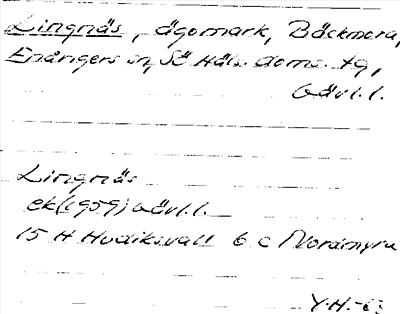 Lingnäs, ägomark, Bäckmora,
Enångers sn, SÖ Häls. doms. tg,
Gävl. l.
Lingnäs
ek (1959) Gävl. l.
15 H Hudiksvall 6 c Nordmyra
Y.H. -63